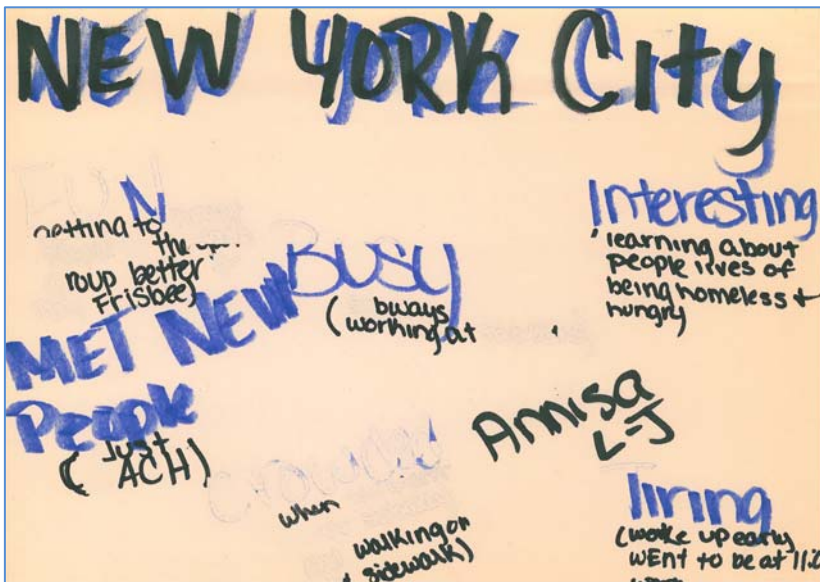 NEW YORK City
FUN
getting to
roup better
Frisbee)
BUSY
(working at
Interesting
learning about
people lives of
being homeless +
hungry
MET NEW
People
( Just
ACH)
Annisa
L-J
crowded
when
walking on
sidewalk)
Tiring
(woke up early
WENT to be at